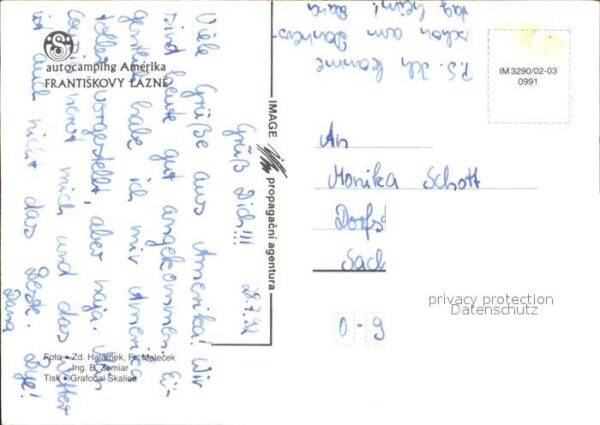 autocamping Amerika
FRANTIŠKOVY LÁZNĚ
28.7.92
Grüß Dich!!!
Viele Grüße aus Amerika! Wir
sind heute gut angekommen. Ei-
gentlich habe ich mir Amerika
toller vorgestellt, aber naja.
nervt mich und das Wetter
ist auch nicht das Beste. Bye!
Dana
P.S. Ich komme
schon am Donners-
tag heim! Dana
IMAGE propagační agentura
IM 3290/02-03
0991
An
Monika Schott
Dorfst
Sach
0-9
privacy protection
Datenschutz
Foto • Zd. Halámek, Fr. Maleček
Ing. B. Zemiar
Tisk • Grafobal Skalica